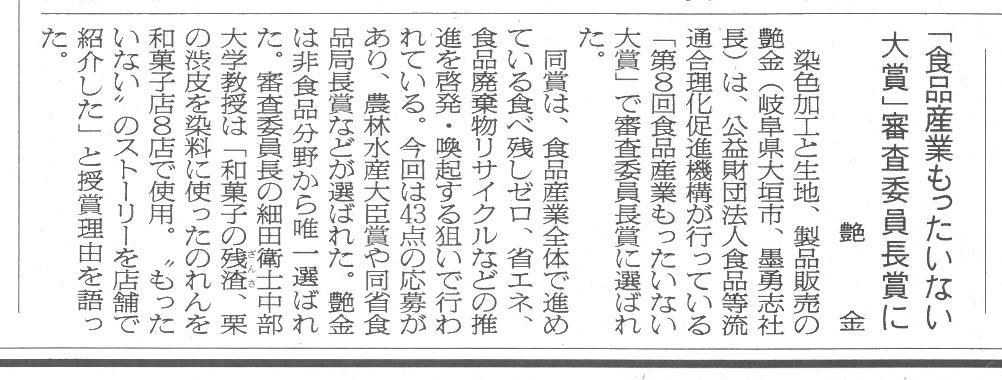 「食品産業もったいない
大賞」審査委員長賞に
艶金
染色加工と生地、製品販売の
艶金（岐阜県大垣市、墨勇志社
長）は、公益財団法人食品等流
通合理化促進機構が行っている
「第８回食品産業もったいない
大賞」で審査委員長賞に選ばれ
た。
同賞は、食品産業全体で進め
ている食べ残しゼロ、省エネ、
食品廃棄物リサイクルなどの推
進を啓発・喚起する狙いで行わ
れている。今回は43点の応募が
あり、農林水産大臣賞や同省食
品局長賞などが選ばれた。艶金
は非食品分野から唯一選ばれ
た。審査委員長の細田衛士中部
大学教授は「和菓子の残渣（ざんさ）、栗
の渋皮を染料に使ったのれんを
和菓子店８店で使用。〝もった
いない〟のストーリーを店舗で
紹介した」と授賞理由を語っ
た。